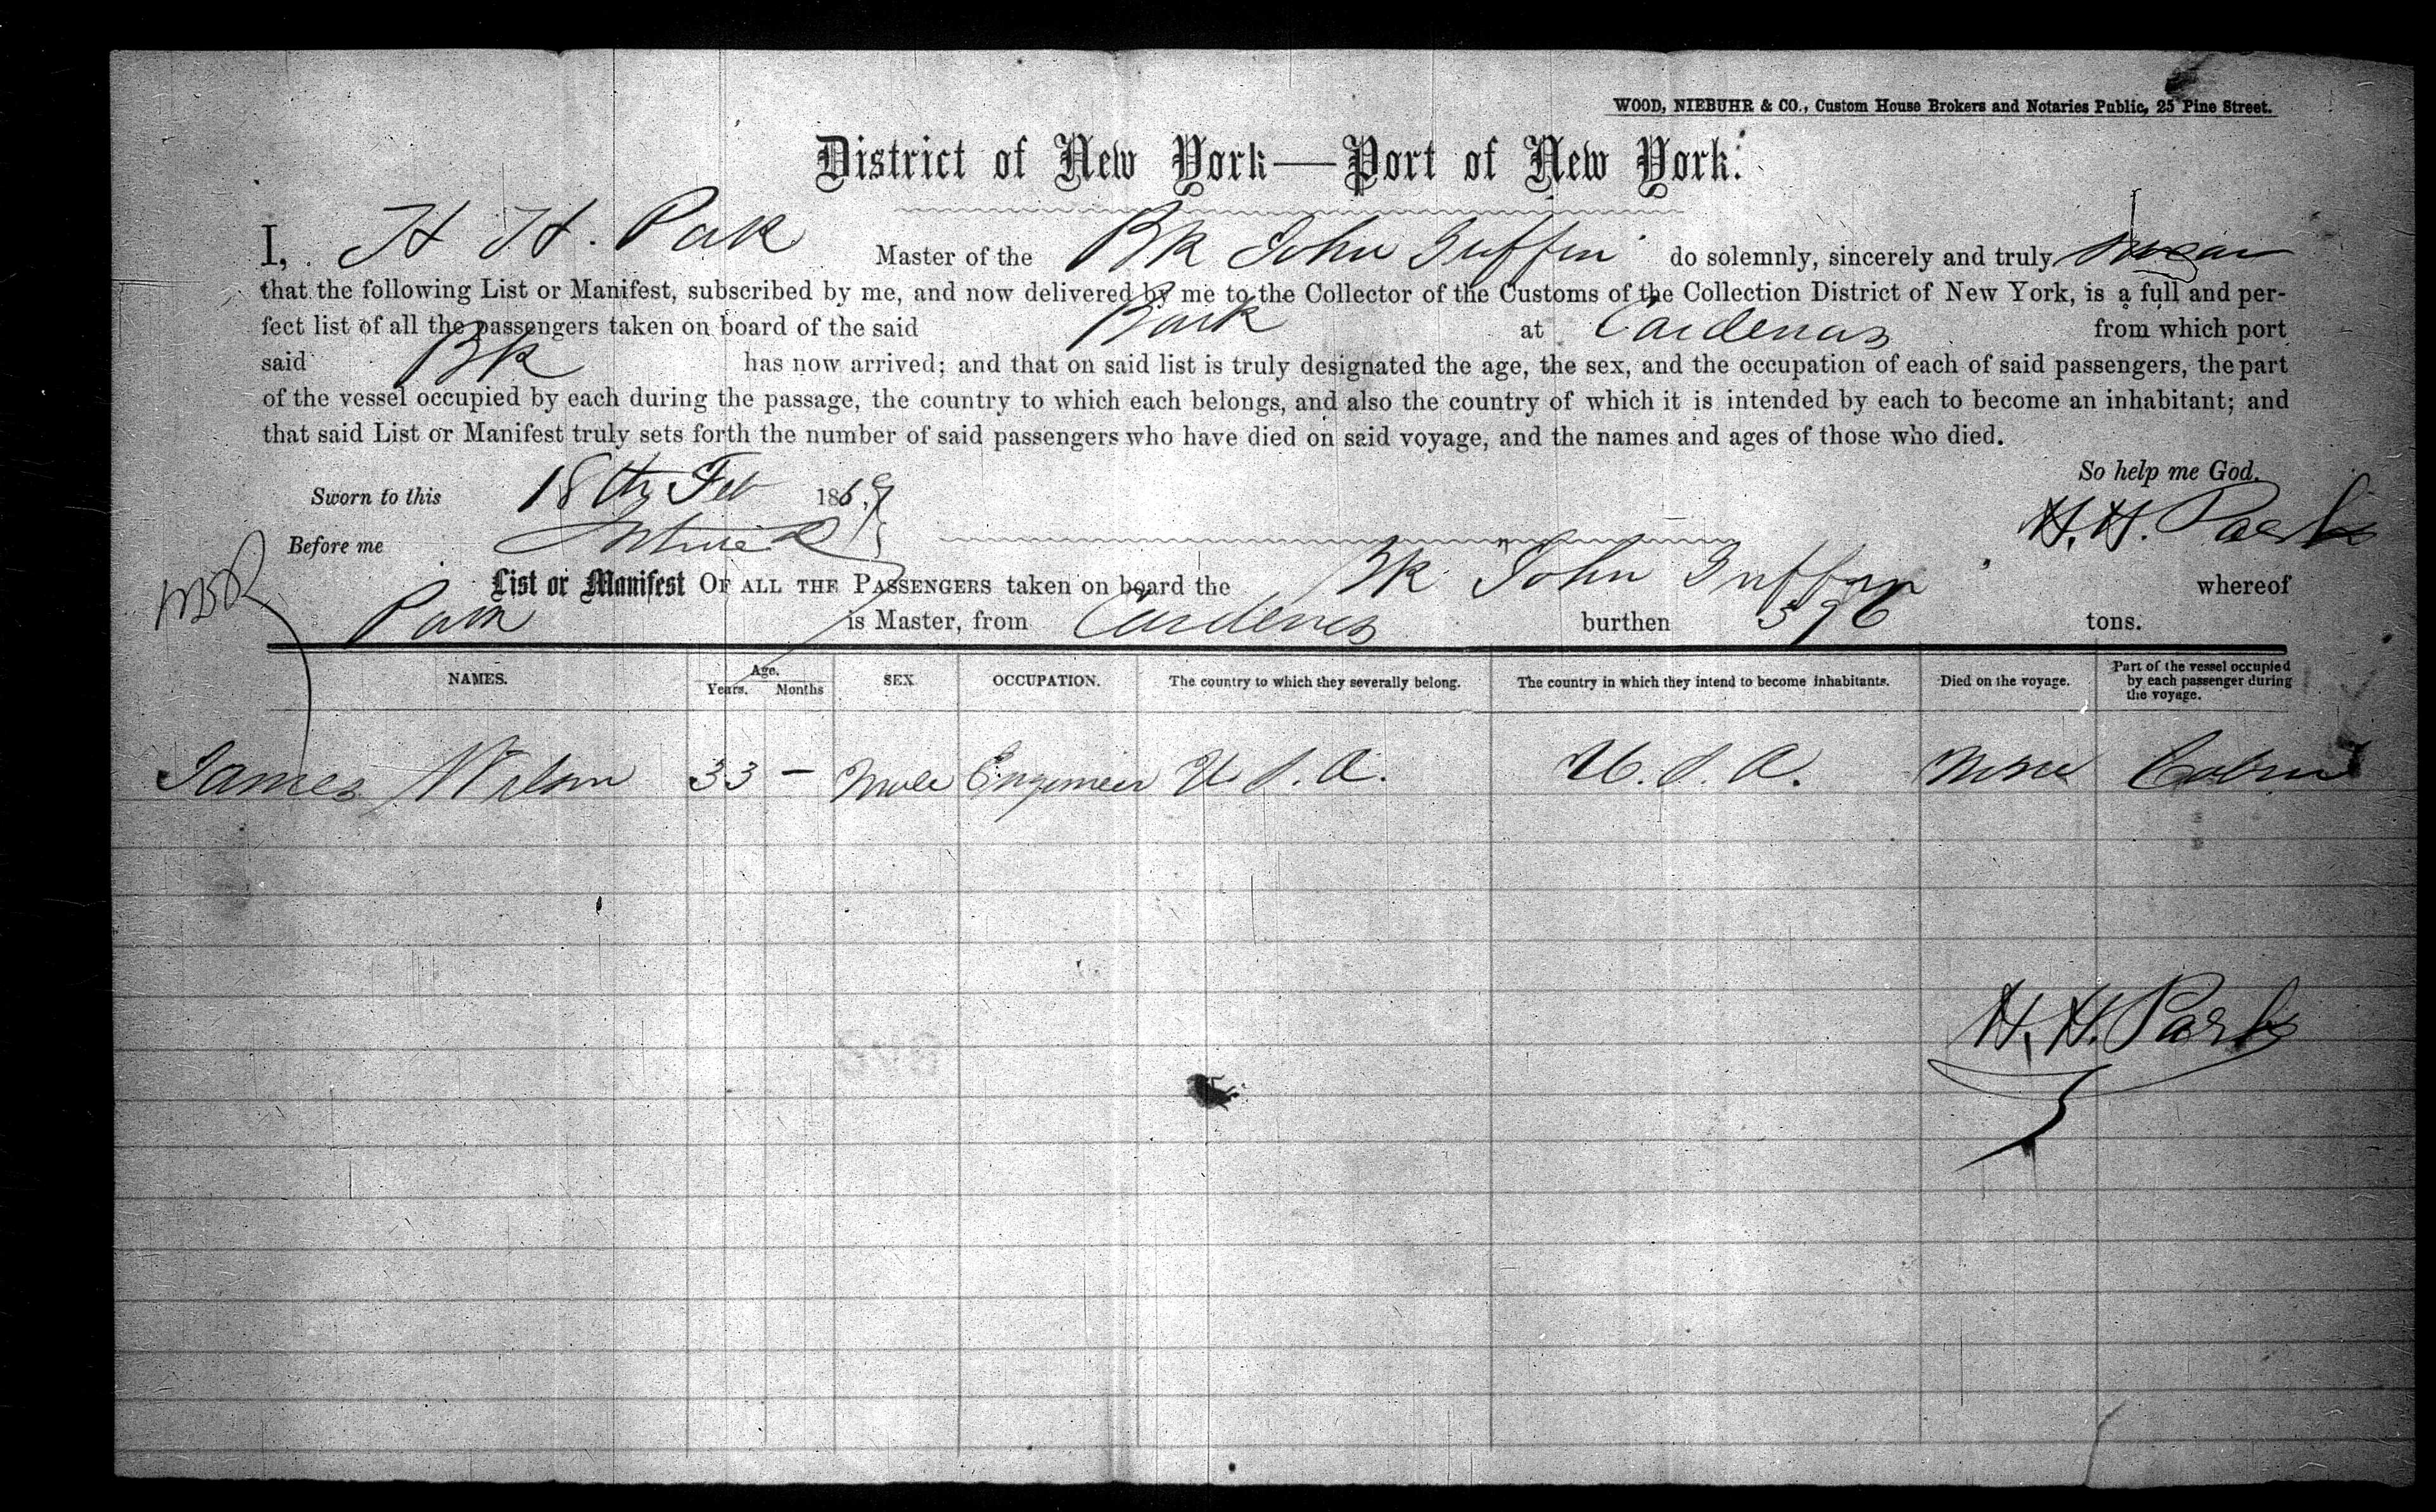 WOOD, NIEBUHR & CO., Custom House Brokers and Notaries Public, 25 Pine Street.
District of New York—Port of New York.
I, H H. Park Master of the Bk John Griffin do solemnly, sincerely and truly swear
that the following List or Manifest, subscribed by me, and now delivered by me to the Collector of the Customs of the Collection District of New York, is a full and per-
fect list of all the passengers taken on board of the said Bark at Cardenas from which port
said Bk has now arrived; and that on said list is truly designated the age, the sex, and the occupation of each of said passengers, the part
of the vessel occupied by each during the passage, the country to which each belongs, and also the country of which it is intended by each to become an inhabitant; and
that said List or Manifest truly sets forth the number of said passengers who have died on said voyage, and the names and ages of those who died.
So help me God.
Sworn to this 18th Feb 1869
H. H. Park
Before me
List or Manifest OF ALL THE PASSENGERS taken on board the Bk John Griffin whereof
Park is Master, from Cardenas burthen 396 tons.
NAMES. Age. Years. Months SEX OCCUPATION. The country to which they severally belong. The country in which they intend to become inhabitants. Died on the voyage. Part of the vessel occupied by each passenger during the voyage.
James Wilson 33 – Male Engineer U. S. A. U. S. A. None Cabin
H. H. Park